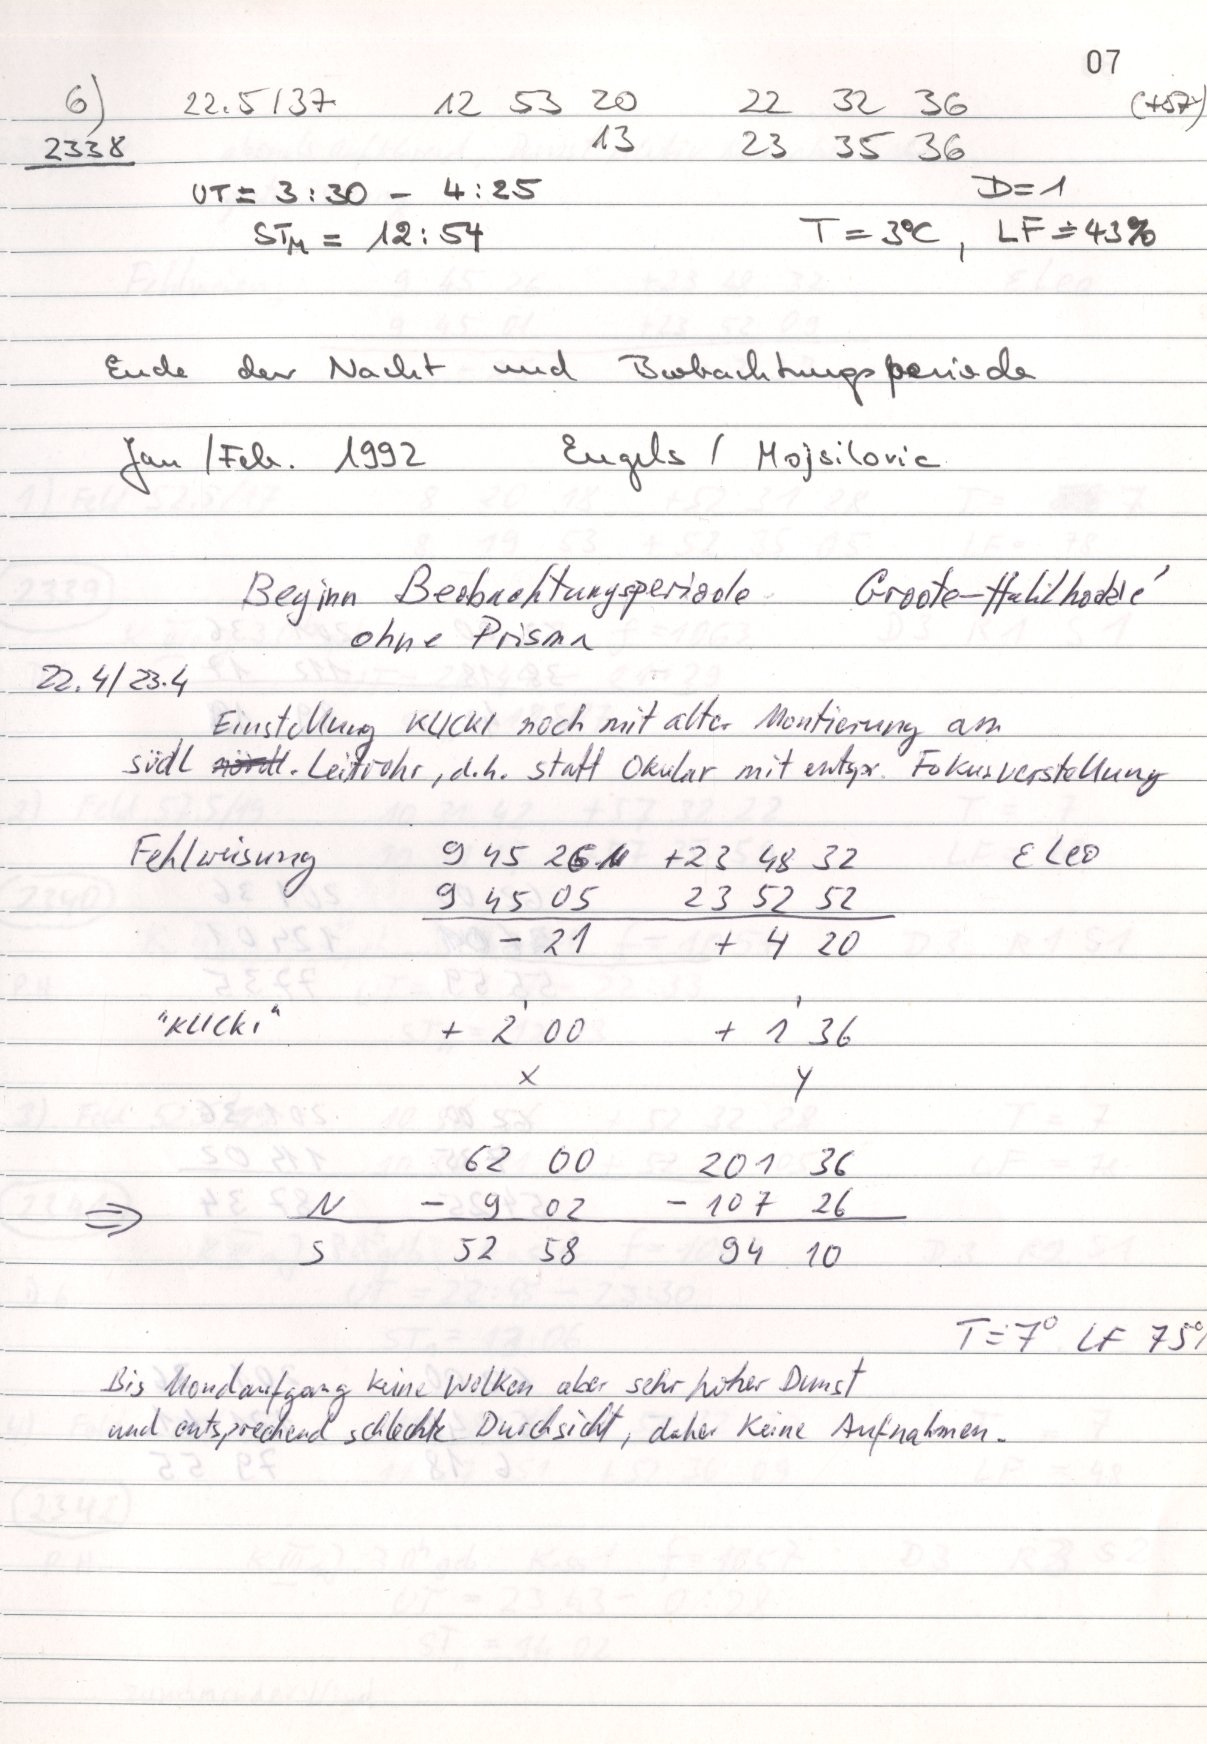 07
6) 22.5/37 12 53 20 22 32 36 (+57)
2338 13 23 35 36
UT = 3:30 - 4:25 D=1
STM = 12:54 T = 3°C, LF = 43%
Ende der Nacht und Beobachtungsperiode
Jan/Feb. 1992 Engels / Mojsilovic
Beginn Beobachtungsperiode
ohne Prisma
22.4/23.4
Einstellung KUCKI noch mit alter Montierung am
südl nördl. Leitrohr, d.h. statt Okular mit entspr. Fokusverstellung
Fehlweisung 9 45 26 +23 48 32 ε Leo
9 45 05 23 52 52
- 21 + 4 20
"KUCKI" + 2' 00 + 1' 36
x y
62 00 201 36
⇒ N - 9 02 - 107 26
S 52 58 94 10
T = 7° LF 75%
Bis Mondaufgang keine Wolken aber sehr hoher Dunst
und entsprechend schlechte Durchsicht, daher keine Aufnahmen.